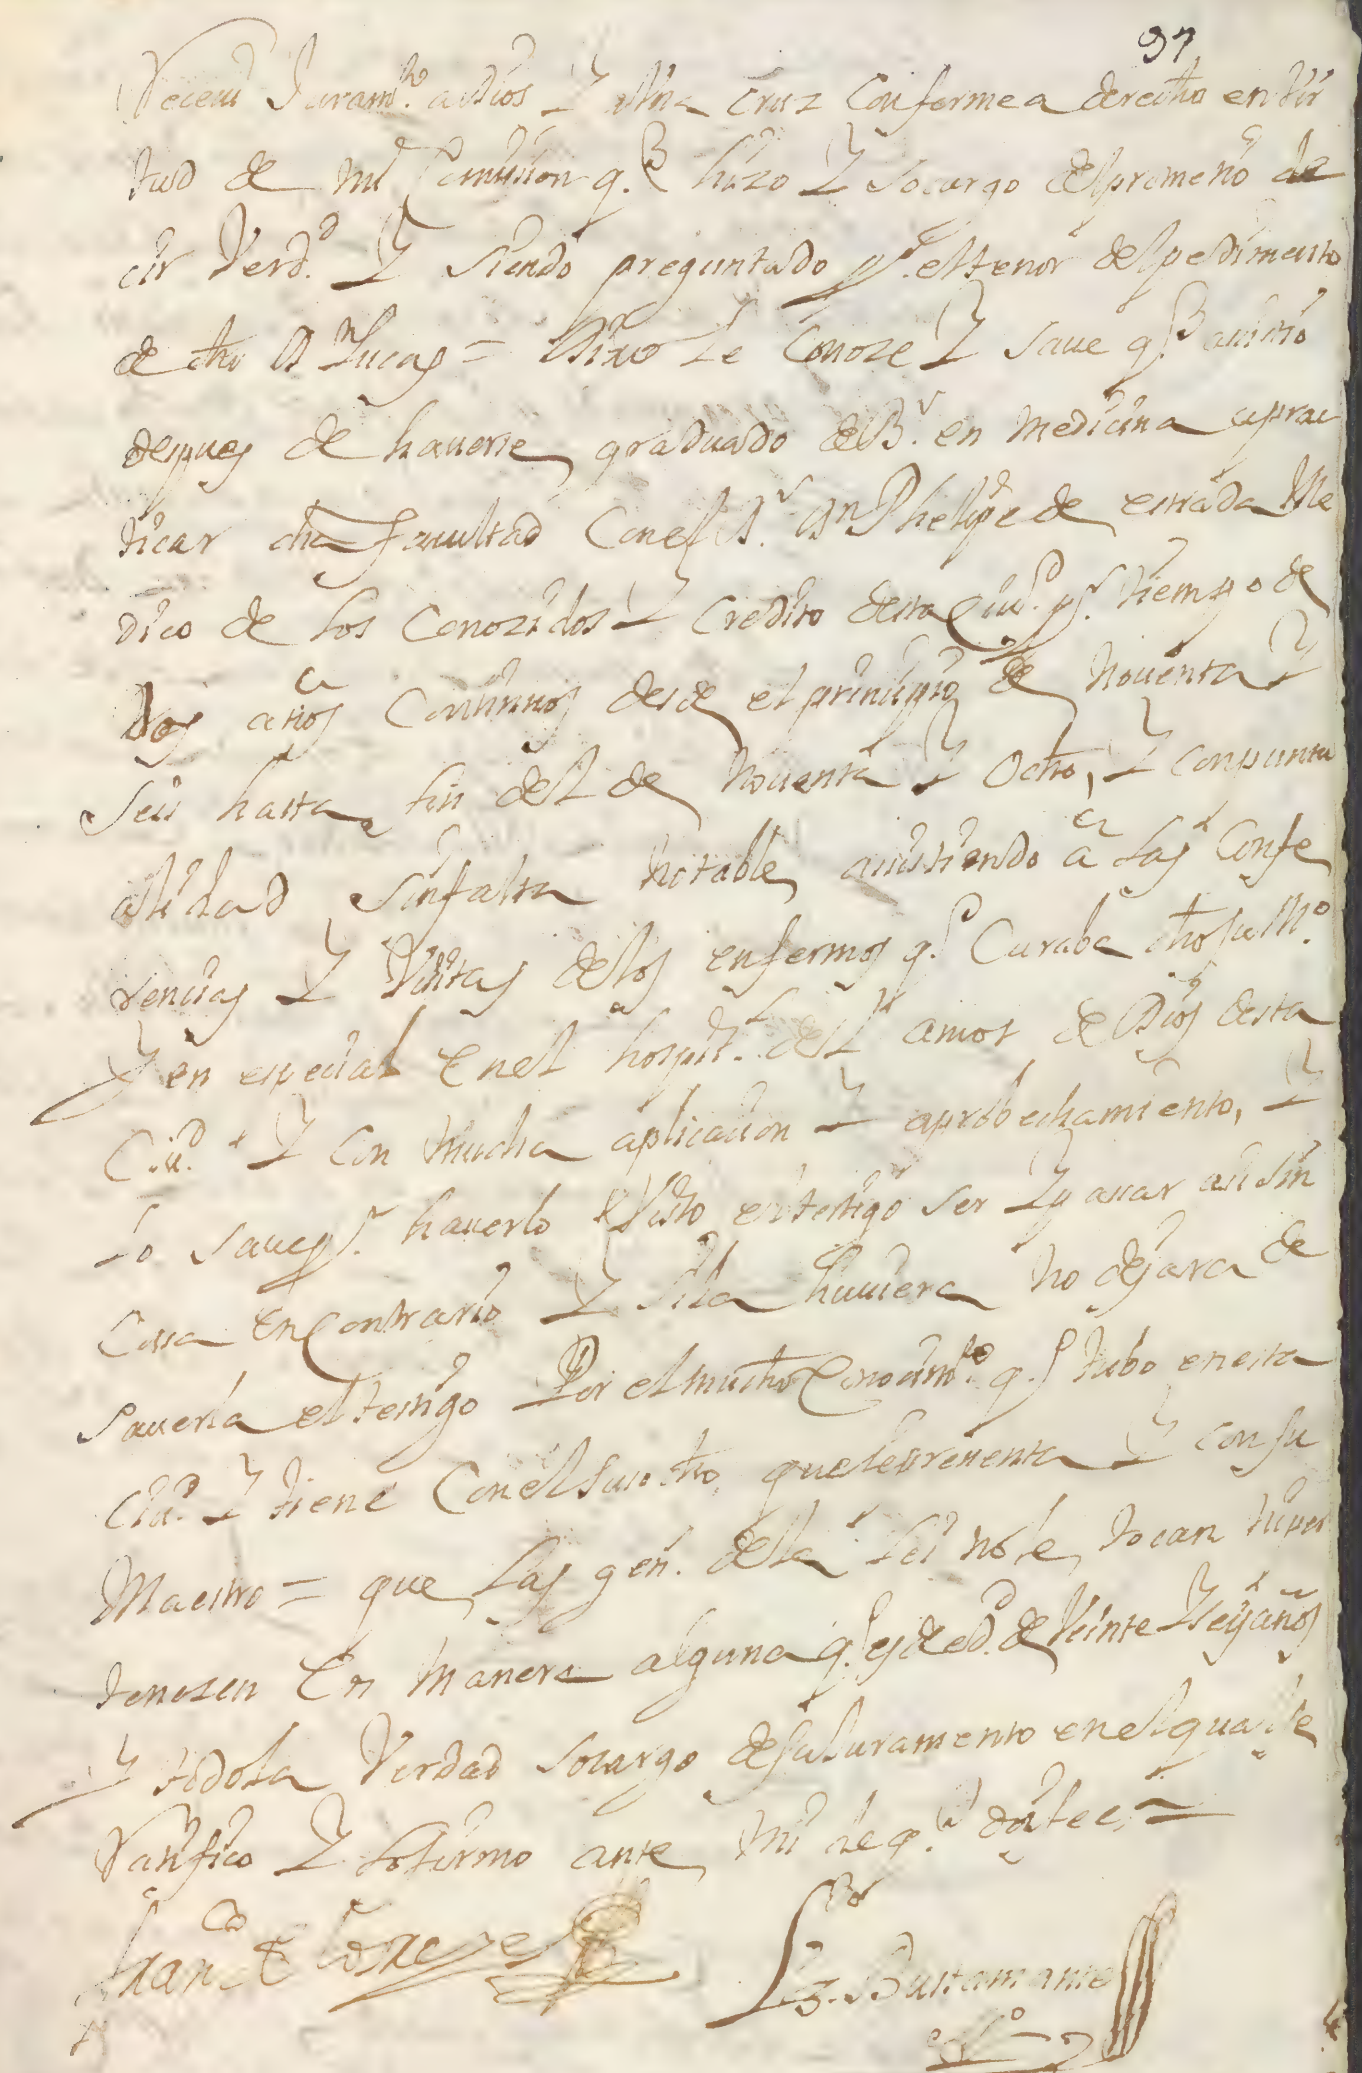 97
Receui Juramto. a Dios Y Una Cruz Conforme a derecho en Vir
tud de mi Comission q.e hizo Y so cargo del prometio de
cir Verd.d Y siendo preguntado pr. el tenor del pedimento
de dho Dn Lucas = Dixo Le Conoze Y saue q.e asistio
despues de hauerse graduado de B.r en Medicina a prac
ticar dha facultad Con el D.r Dn Phelipe de estrada Me
dico de los Conozidos Y Credito desta Ciu.d pr. tiempo de
Dos años Continuos desde el principio de Nouenta Y
Seis hasta fin del de Nouenta Y Ocho, Y con puntu
alidad sin falta notable asistiendo â las Confe
rencias Y Visitas de los enfermos q.e Curaba dho su M.o
Y en especial en el hospit.l del amor de Dios desta
Ciu.d Y con mucha aplicacion Y aprobechamiento, Y
lo saue pr. hauerlo Visto el testigo ser Y pasar asi sin
Cossa en Contrario Y si la huuiera no dejara de
sauerla el testigo Por el mucho Conocim.to q.e tubo en esta
Ciu.d Y tiene Con el suso dho que le presenta Y con su
Maestro = que Las gen. de la Lei no le tocan ni per
tenezen En manera alguna q.e es de ed.d de Veinte Y seis años
Y todo la Verdad so cargo de su Juramento en el qual se
Ratifico Y lo firmo ante mi de q.e doi fee =
Fran.co de Torres
Lz. Bustamante